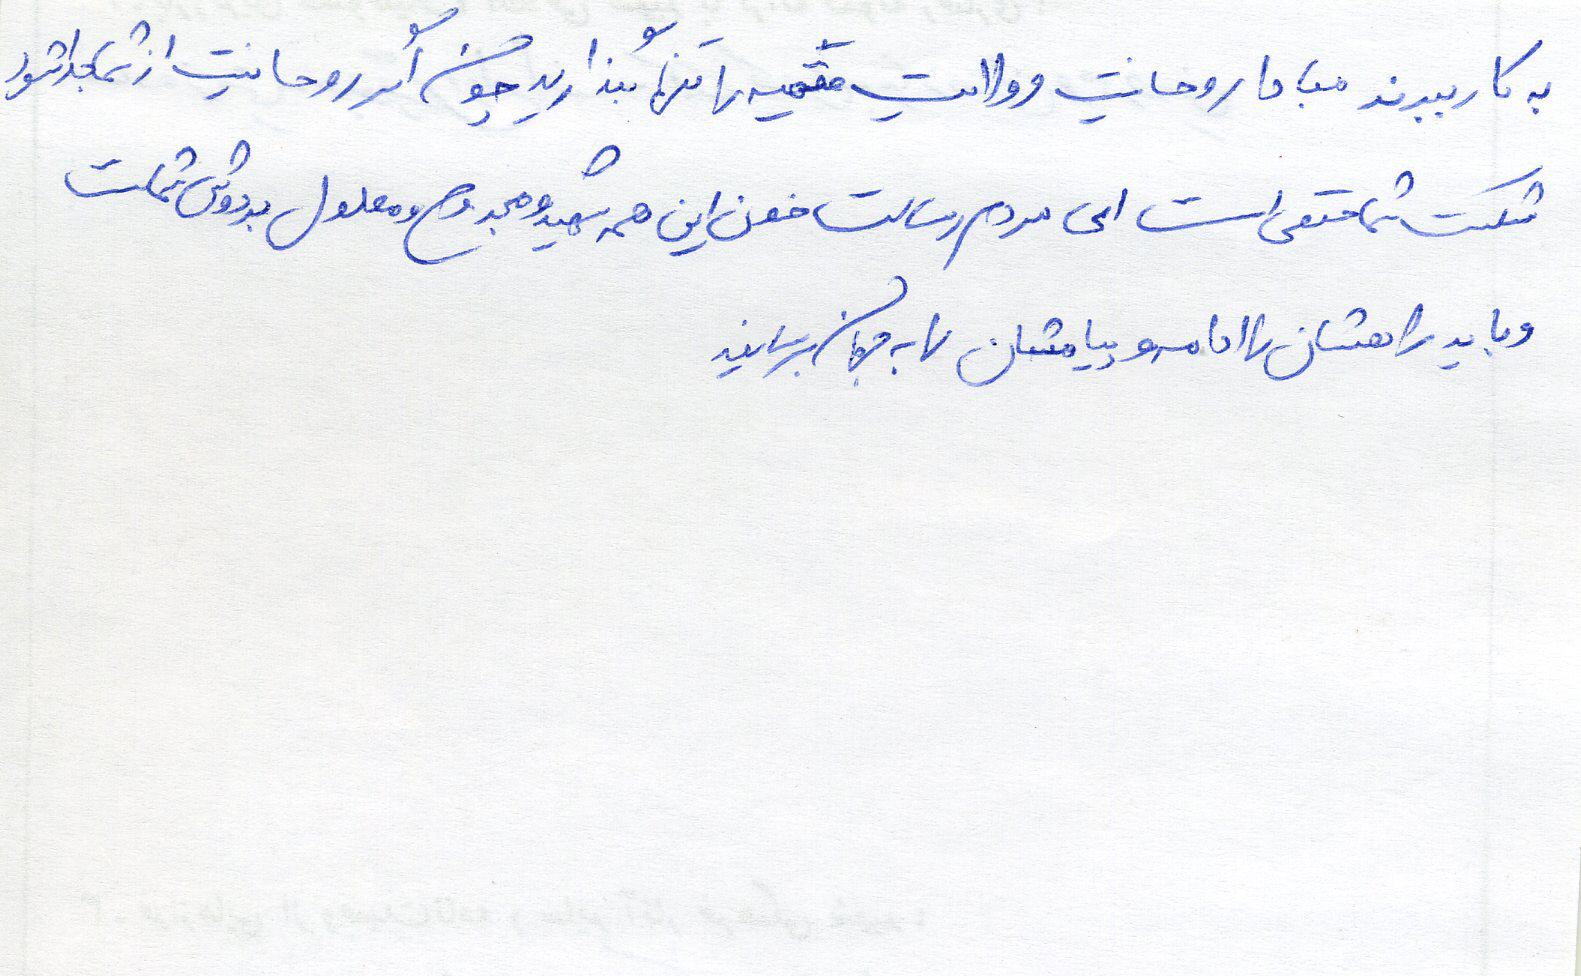 به کار ببرند مبادا روحانیت و ولایت فقیه را تنها بگذارید چون اگر روحانیت از شما جدا شود
شکست شما حتمی است ای مردم رسالت خون این همه شهید و مجروح و معلول بردوش شماست
و باید راهشان را ادامه و پیامشان را به جهان برسانید